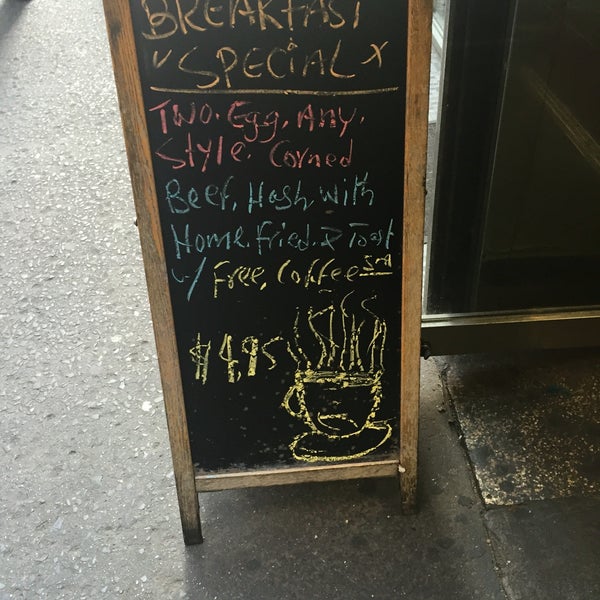 BREAKFAST
" SPECIAL "
Two. Egg. Any.
Style. Corned
Beef, Hash with
Home. Fried. & Toast
w/ Free, Coffee SM
$4.95